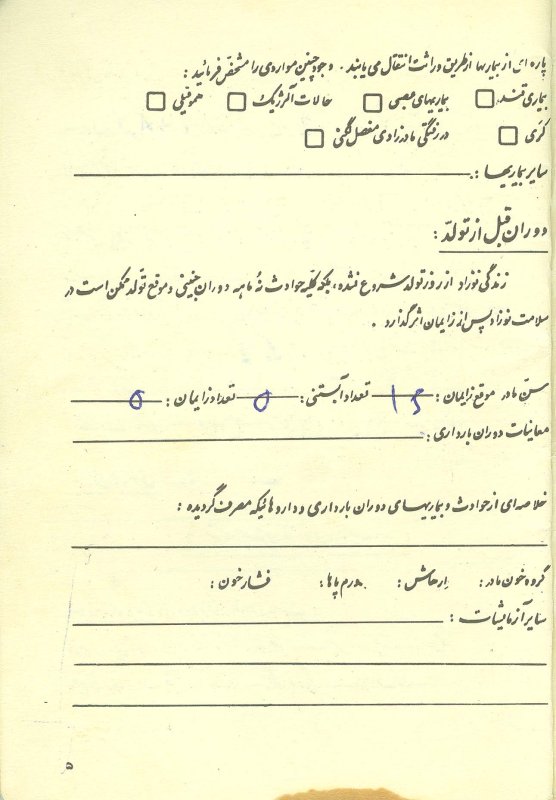 پاره ای از بیماریها از طریق وراثت انتقال می یابند . وجود چنین مواردی را مشخص فرمائید :
بیماری قند □ بیماریهای عصبی □ حالات آلرژیک □ هموفیلی □
کری □ دررفتگی مادرزادی مفصل لگن □
سایر بیماریها :
دوران قبل از تولد :
زندگی نوزاد از روز تولد شروع نشده ، بلکه کلیه حوادث نه ماهه دوران جنینی و موقع تولد ممکن است در
سلامت نوزاد پس از زایمان اثر گذارد .
سن مادر موقع زایمان : تعداد آبستنی : ۵ تعداد زایمان : ۵
معاینات دوران بارداری :
خلاصه ای از حوادث و بیماریهای دوران بارداری و داروهائیکه مصرف گردیده :
گروه خون مادر : ار هاش : ورم پاها : فشار خون :
سایر آزمایشات :
۵